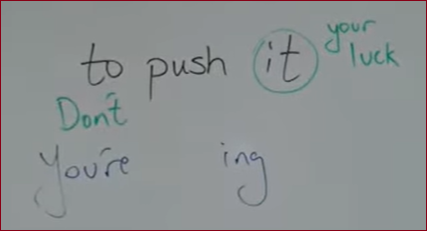 to push it your luck
Don't
You're ing